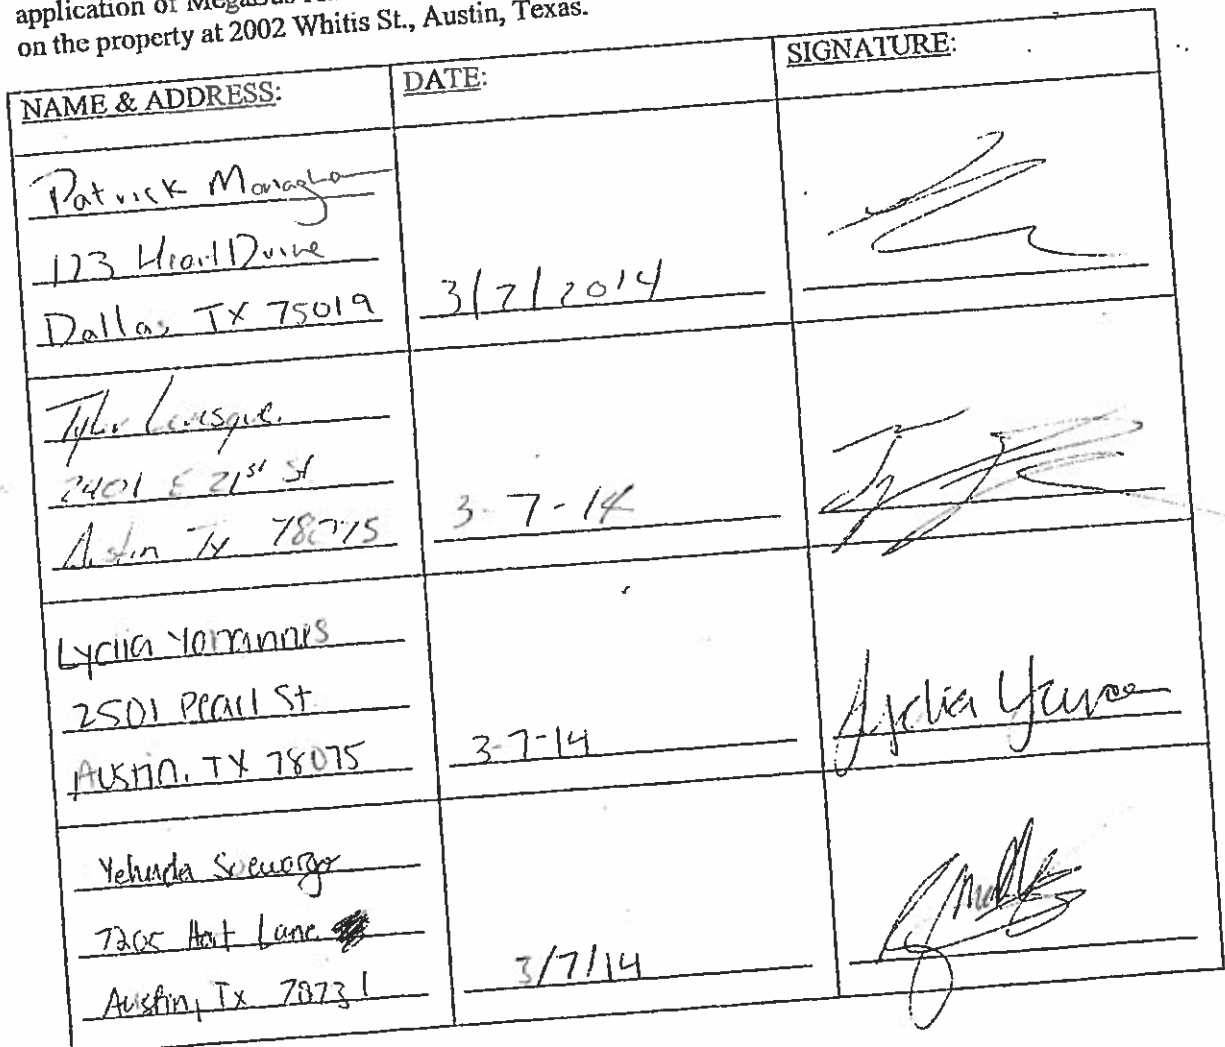 application of
on the property at 2002 Whitis St., Austin, Texas.
NAME & ADDRESS:
DATE:
SIGNATURE:
Patrick
123 Drive
Dallas, TX 75019
3/7/2014
Tyler Levesque
2401 E 21st St
Austin Tx
3-7-14
Lydia
2501 Pearl St
Austin, TX 78075
3-7-14
Lydia
Yehuda
7205 Hart Lane
Austin, Tx 78731
3/7/14